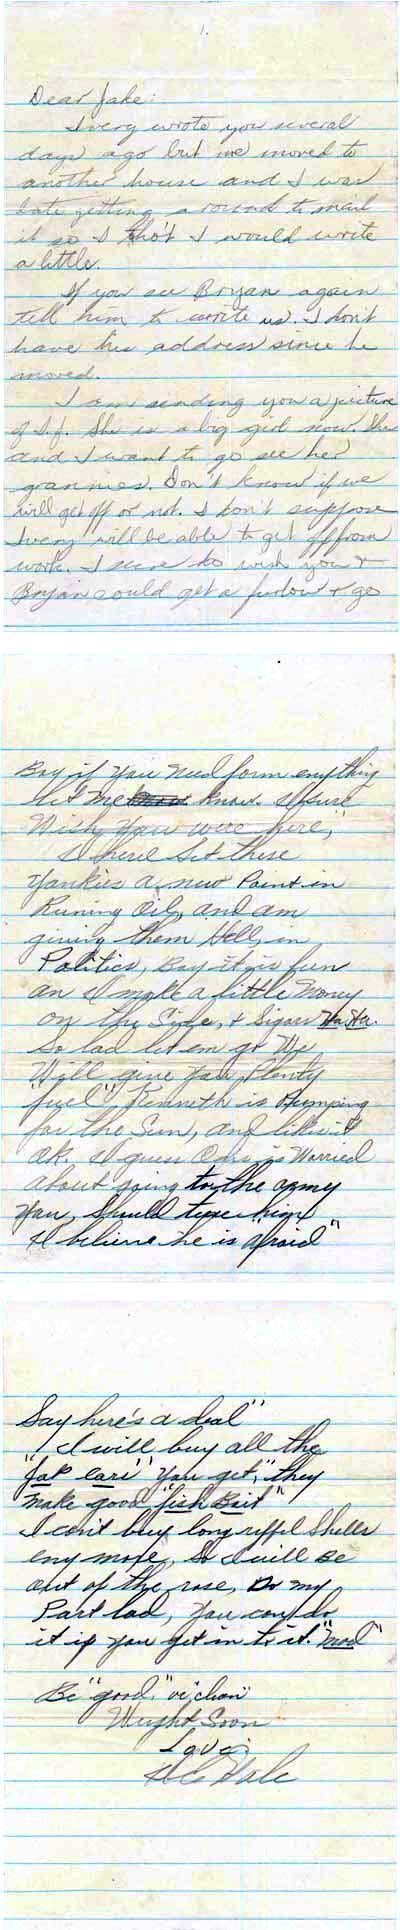 1.
Dear Jake:
Ivery wrote you several
days ago but we moved to
another house and I was
late getting around to mail
it so I tho't I would write
a little.
If you see Bryan again
tell him to write us. I don't
have his address since he
moved.
I am sending you a picture
of S.J. She is a big girl now. She
and I want to go see her
grannies. Don't know if we
will get off or not. I don't suppose
Ivery will be able to get off from
work. I sure do wish you +
Bryan could get a furlow + go
Boy if you need form enything
let me know. I sure
Wish you were here,"
I have set these
Yankies a new Point in
Runing Oil, and am
giving them Hell, in
Politics, Boy it is fun
an I make a little Money
on the Side, +
So lad let em go We
Will give you Plenty
fuel" Kenneth is Pumping
for the Sun, and likes it
ok. I guess is Worried
about going to the army
You, Should tease him
I believe he is afraid"
Say here's a deal"
I will buy all the
"Jap ears" you get," they
make good "fish Bait"
I can't buy long riffel Shells
eny more, So I will Be
out of the Do my
Part lad, you can do
it if you get in to it.
Be "good"
Wright Soon
Love
Hale